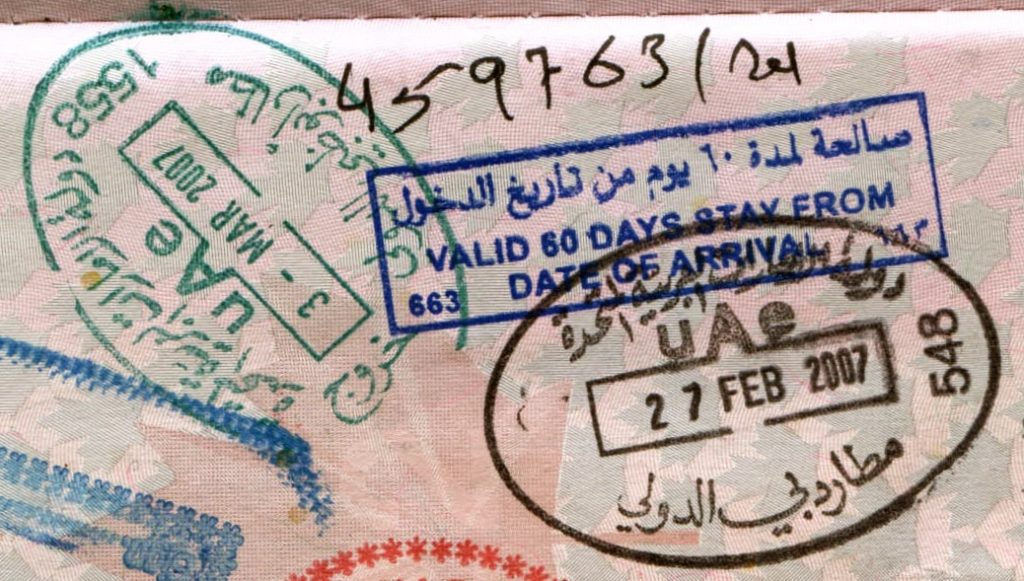 459763/
صالحة لمدة ٦٠ يوم من تاريخ الدخول
VALID 60 DAYS STAY FROM
DATE OF ARRIVAL
663
دولة الإمارات العربية المتحدة
uAe
27 FEB 2007
548
مطار دبي الدولي
1558
uAe
3 - MAR 2007
خروج